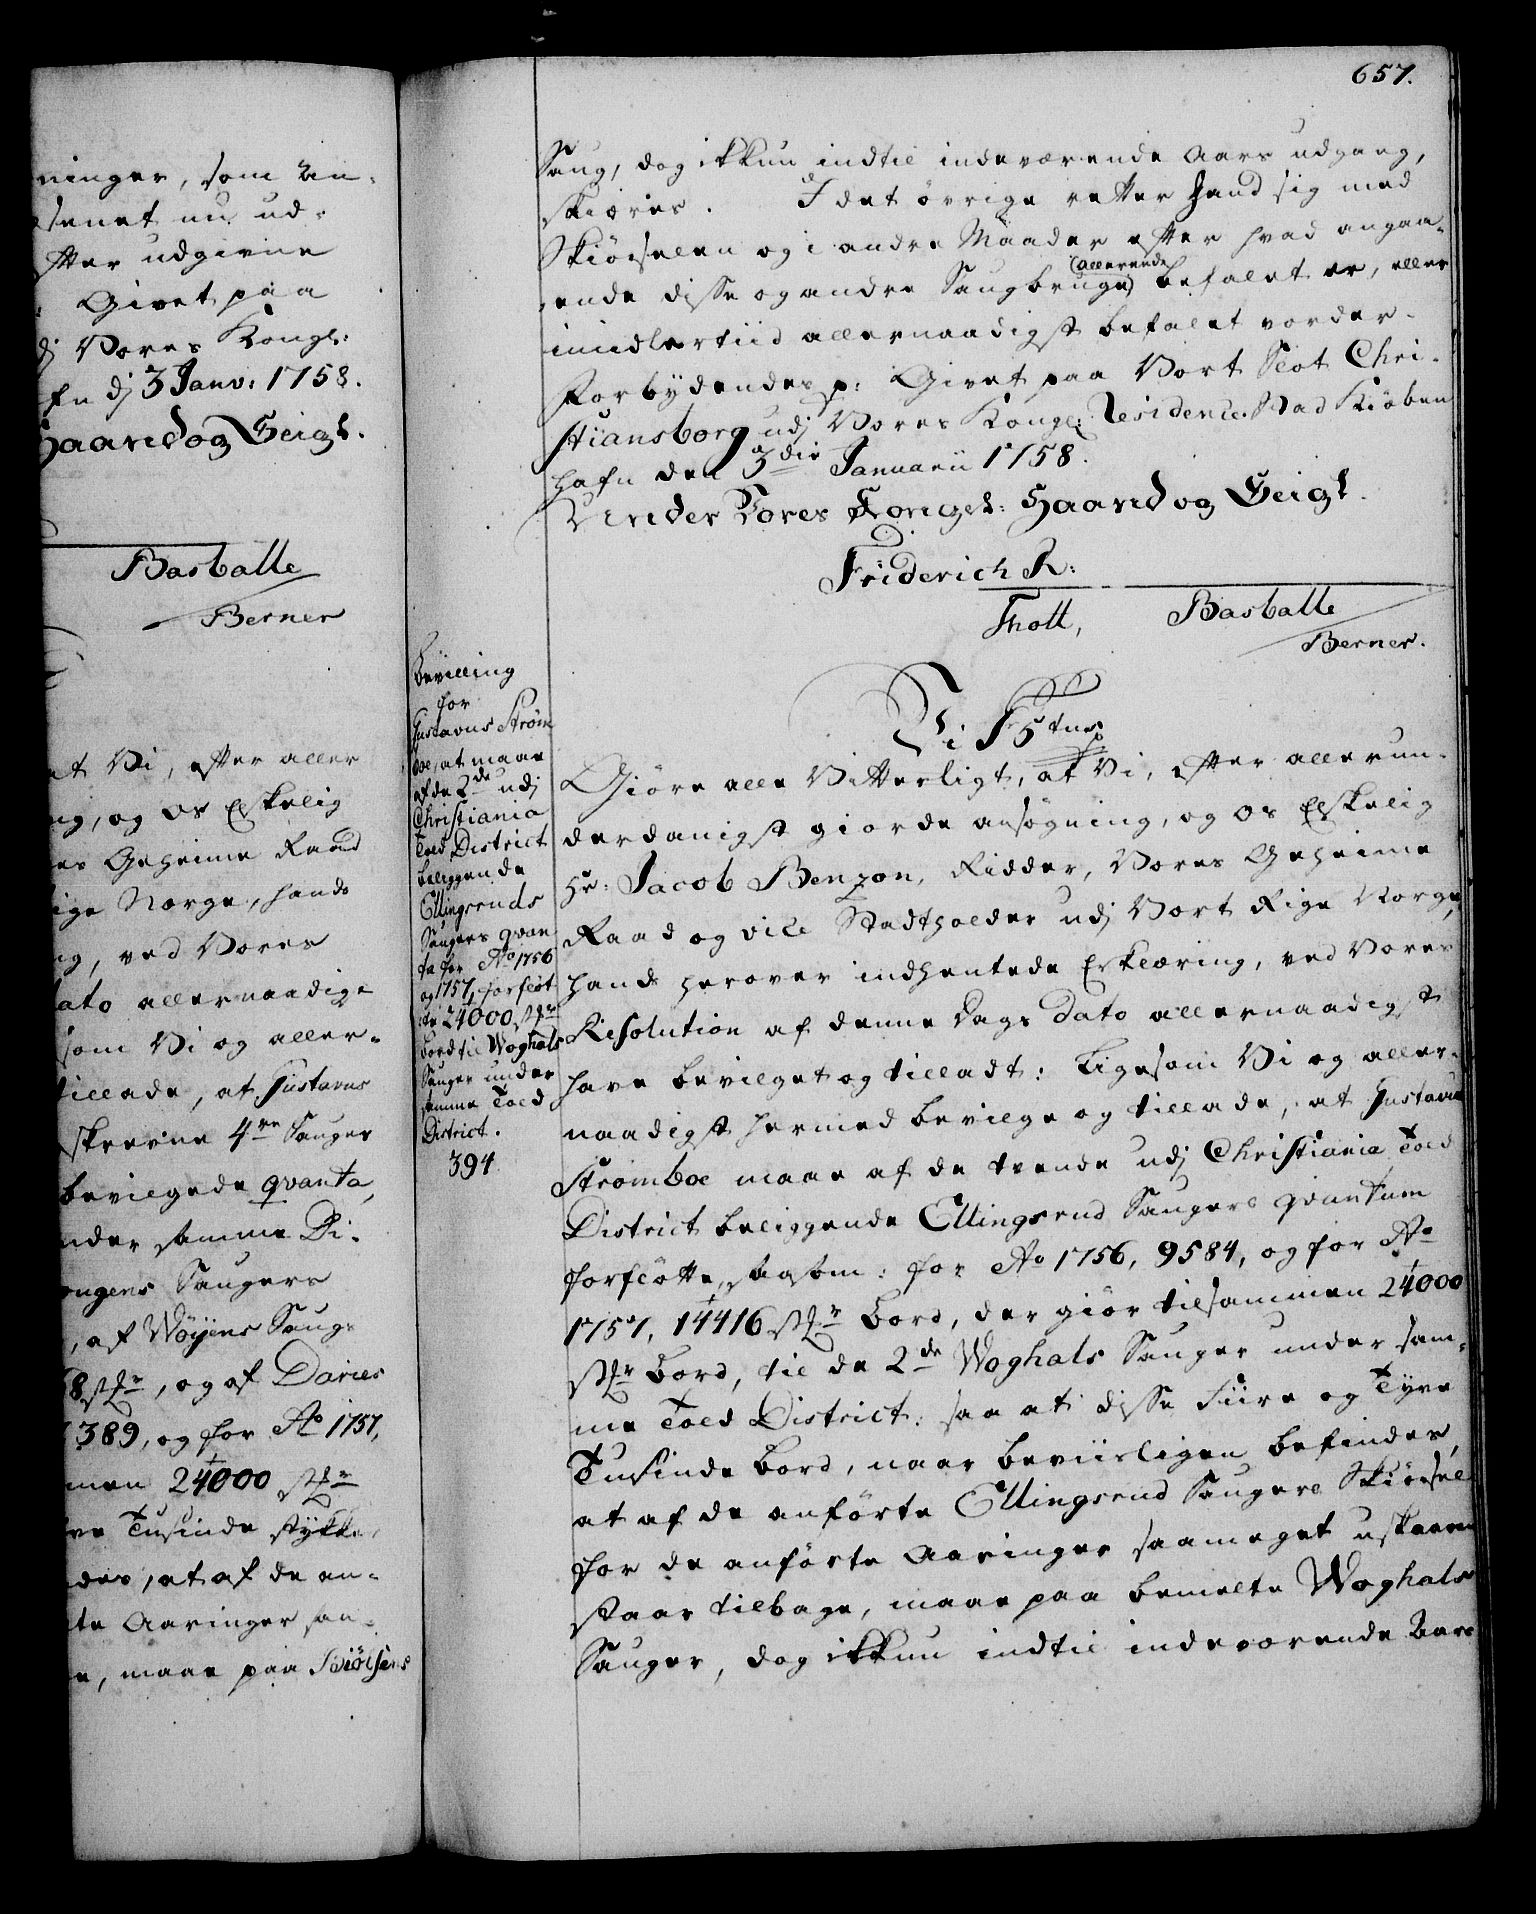 ninger, som An-
senet nu ud-
efter udgivne
Givet paa
dj Vores Kongl:
hafn dj 3 Janv: 1758.
Haand og Seigl.
Basballe
Berner
at Vi, efter aller
ng, og Os Elskelig
res Geheime Raad
ige Norge, hands
ng, ved Vores
dato allernaadigst
som Vi og aller-
tillade, at Gustavus
skrevne 4re Sauger
bevilgede qvanta,
under samme Di-
ongens Saugers
, af Wöyens Saug-
68 Stkr, og af Daries
389, og for Ao 1757,
men 24000 Stkr
yve Tusinde stykker
des, at af de an-
te Aaringer saa-
e, maae paa Biölsens
657.
Saug, dog ikkun indtil indeværende Aars udgang,
skiæres. I det övrige retter hand sig med
Skiörselen og i andre Maader efter hvad angaa-
ende disse og andre Saugbruge (allerende) befalet er, eller
imidlertiid allernaadigst befalet vorder.
Forbydendes p: Givet paa Vort Slot Chri-
stiansborg udj Vores Kongl: Residence Stad Kiöben
hafn den 3die Januarii 1758.
Under Vores Kongel: Haand og Seigl.
Friderich R:
Thott, Basballe
Berner.
Bevilling
for
Gustavus Ström
boe, at maae
af de 2de udj
Christiania
Told District
beliggende
Ellingsruds
Saugers qvan
ta for Ao 1756
og 1757, forflöt-
te 24000 Stkr
Bord til Woghals
Sauger under
samme Told
District.
394
Vi F 5tus p
Giöre alle Vitterligt, at Vi, efter allerun-
derdanigst giorde ansögning, og Os Elskelig
Hr: Jacob Benzon, Ridder, Vores Geheime
Raad og vice Stadtholder udj Vort Rige Norge,
hands herover indhentede Erklæring, ved Vores
Resolution af denne Dags Dato allernaadigst
have bevilget og tilladt: Ligesom Vi og aller-
naadigst hermed bevilge og tillade, at Gustavus
Stromboe maae af de tvende udj Christiania Told
District beliggende Ellingsrud Saugers qvantum
forflötte, saasom: for Ao 1756, 9584, og for Ao
1757, 14416 Stkr Bord, der giör tilsammen 24000
Stkr Bord, til de 2de Woghals Sauger under sam-
me Told District: saa at disse Fiire og Tyve
Tusinde Bord, naar beviisligen befindes,
at af de anförte Ellingsrud Saugers Skiörsel
for de anförte Aaringer saameget uskaaren
staar tilbage, maae paa bemelte Woghals
Sauger, dog ikkun indtil indeværende Aars